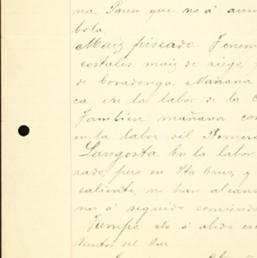 na Saren que no á aum
bola.
Maiz piscado. Tenem
costales maiz de riego,
de Covadonga. Mañana
ca en la labor de la C
Tambien mañana co
en la labor del Romer
Langosta. En la labor
rado, pero en Sta Cruz, y
caliente, no han alcan
na á seguido comiend
Tiempo. ele á abido es
tientos del Sur